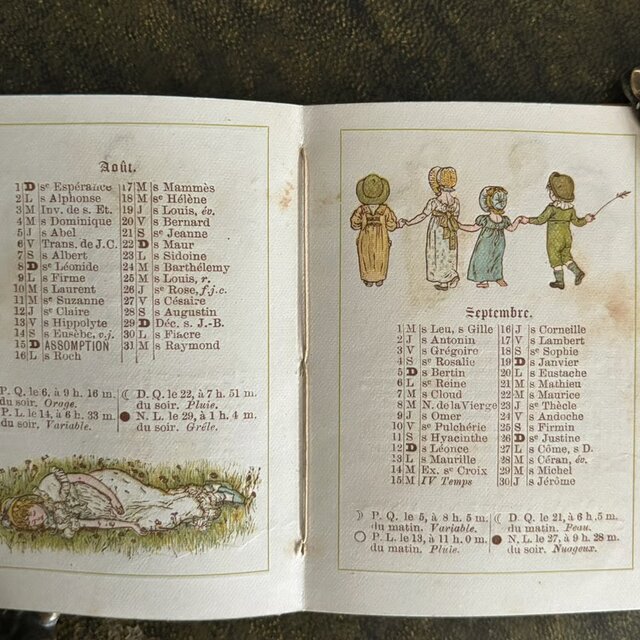 Août.
1 D se Espérance
2 L s Alphonse
3 M Inv. de s. Et.
4 M s Dominique
5 J s Abel
6 V Trans. de J.C.
7 S s Albert
8 D se Léonide
9 L s Firme
10 M s Laurent
11 M se Suzanne
12 J se Claire
13 V s Hippolyte
14 S s Eusèbe, v.j.
15 D ASSOMPTION
16 L s Roch
17 M s Mammès
18 M se Hélène
19 J s Louis, év.
20 V s Bernard
21 S se Jeanne
22 D s Maur
23 L s Sidoine
24 M s Barthélemy
25 M s Louis, r.
26 J se Rose, f.j.c.
27 V s Césaire
28 S s Augustin
29 D Déc. s. J.-B.
30 L s Fiacre
31 M s Raymond
P. Q. le 6, à 9 h. 16 m.
du soir. Orage.
P. L. le 14, à 6 h. 33 m.
du soir. Variable.
☾ D. Q. le 22, à 7 h. 51 m.
du soir. Pluie.
● N. L. le 29, à 1 h. 4 m.
du soir. Grêle.
Septembre.
1 M s Leu, s Gille
2 J s Antonin
3 V s Grégoire
4 S se Rosalie
5 D s Bertin
6 L se Reine
7 M s Cloud
8 M N. de la Vierge
9 J s Omer
10 V se Pulchérie
11 S s Hyacinthe
12 D s Léonce
13 L s Maurille
14 M Ex. se Croix
15 M IV Temps
16 J s Corneille
17 V s Lambert
18 S se Sophie
19 D s Janvier
20 L s Eustache
21 M s Mathieu
22 M s Maurice
23 J se Thècle
24 V s Andoche
25 S s Firmin
26 D se Justine
27 L s Côme, s D.
28 M s Céran, év.
29 M s Michel
30 J s Jérôme
☽ P. Q. le 5, à 8 h. 5 m.
du matin. Variable.
○ P. L. le 13, à 11 h. 0 m.
du matin. Pluie.
☾ D. Q. le 21, à 6 h. 5 m.
du matin. Beau.
● N. L. le 27, à 9 h. 28 m.
du soir. Nuageux.